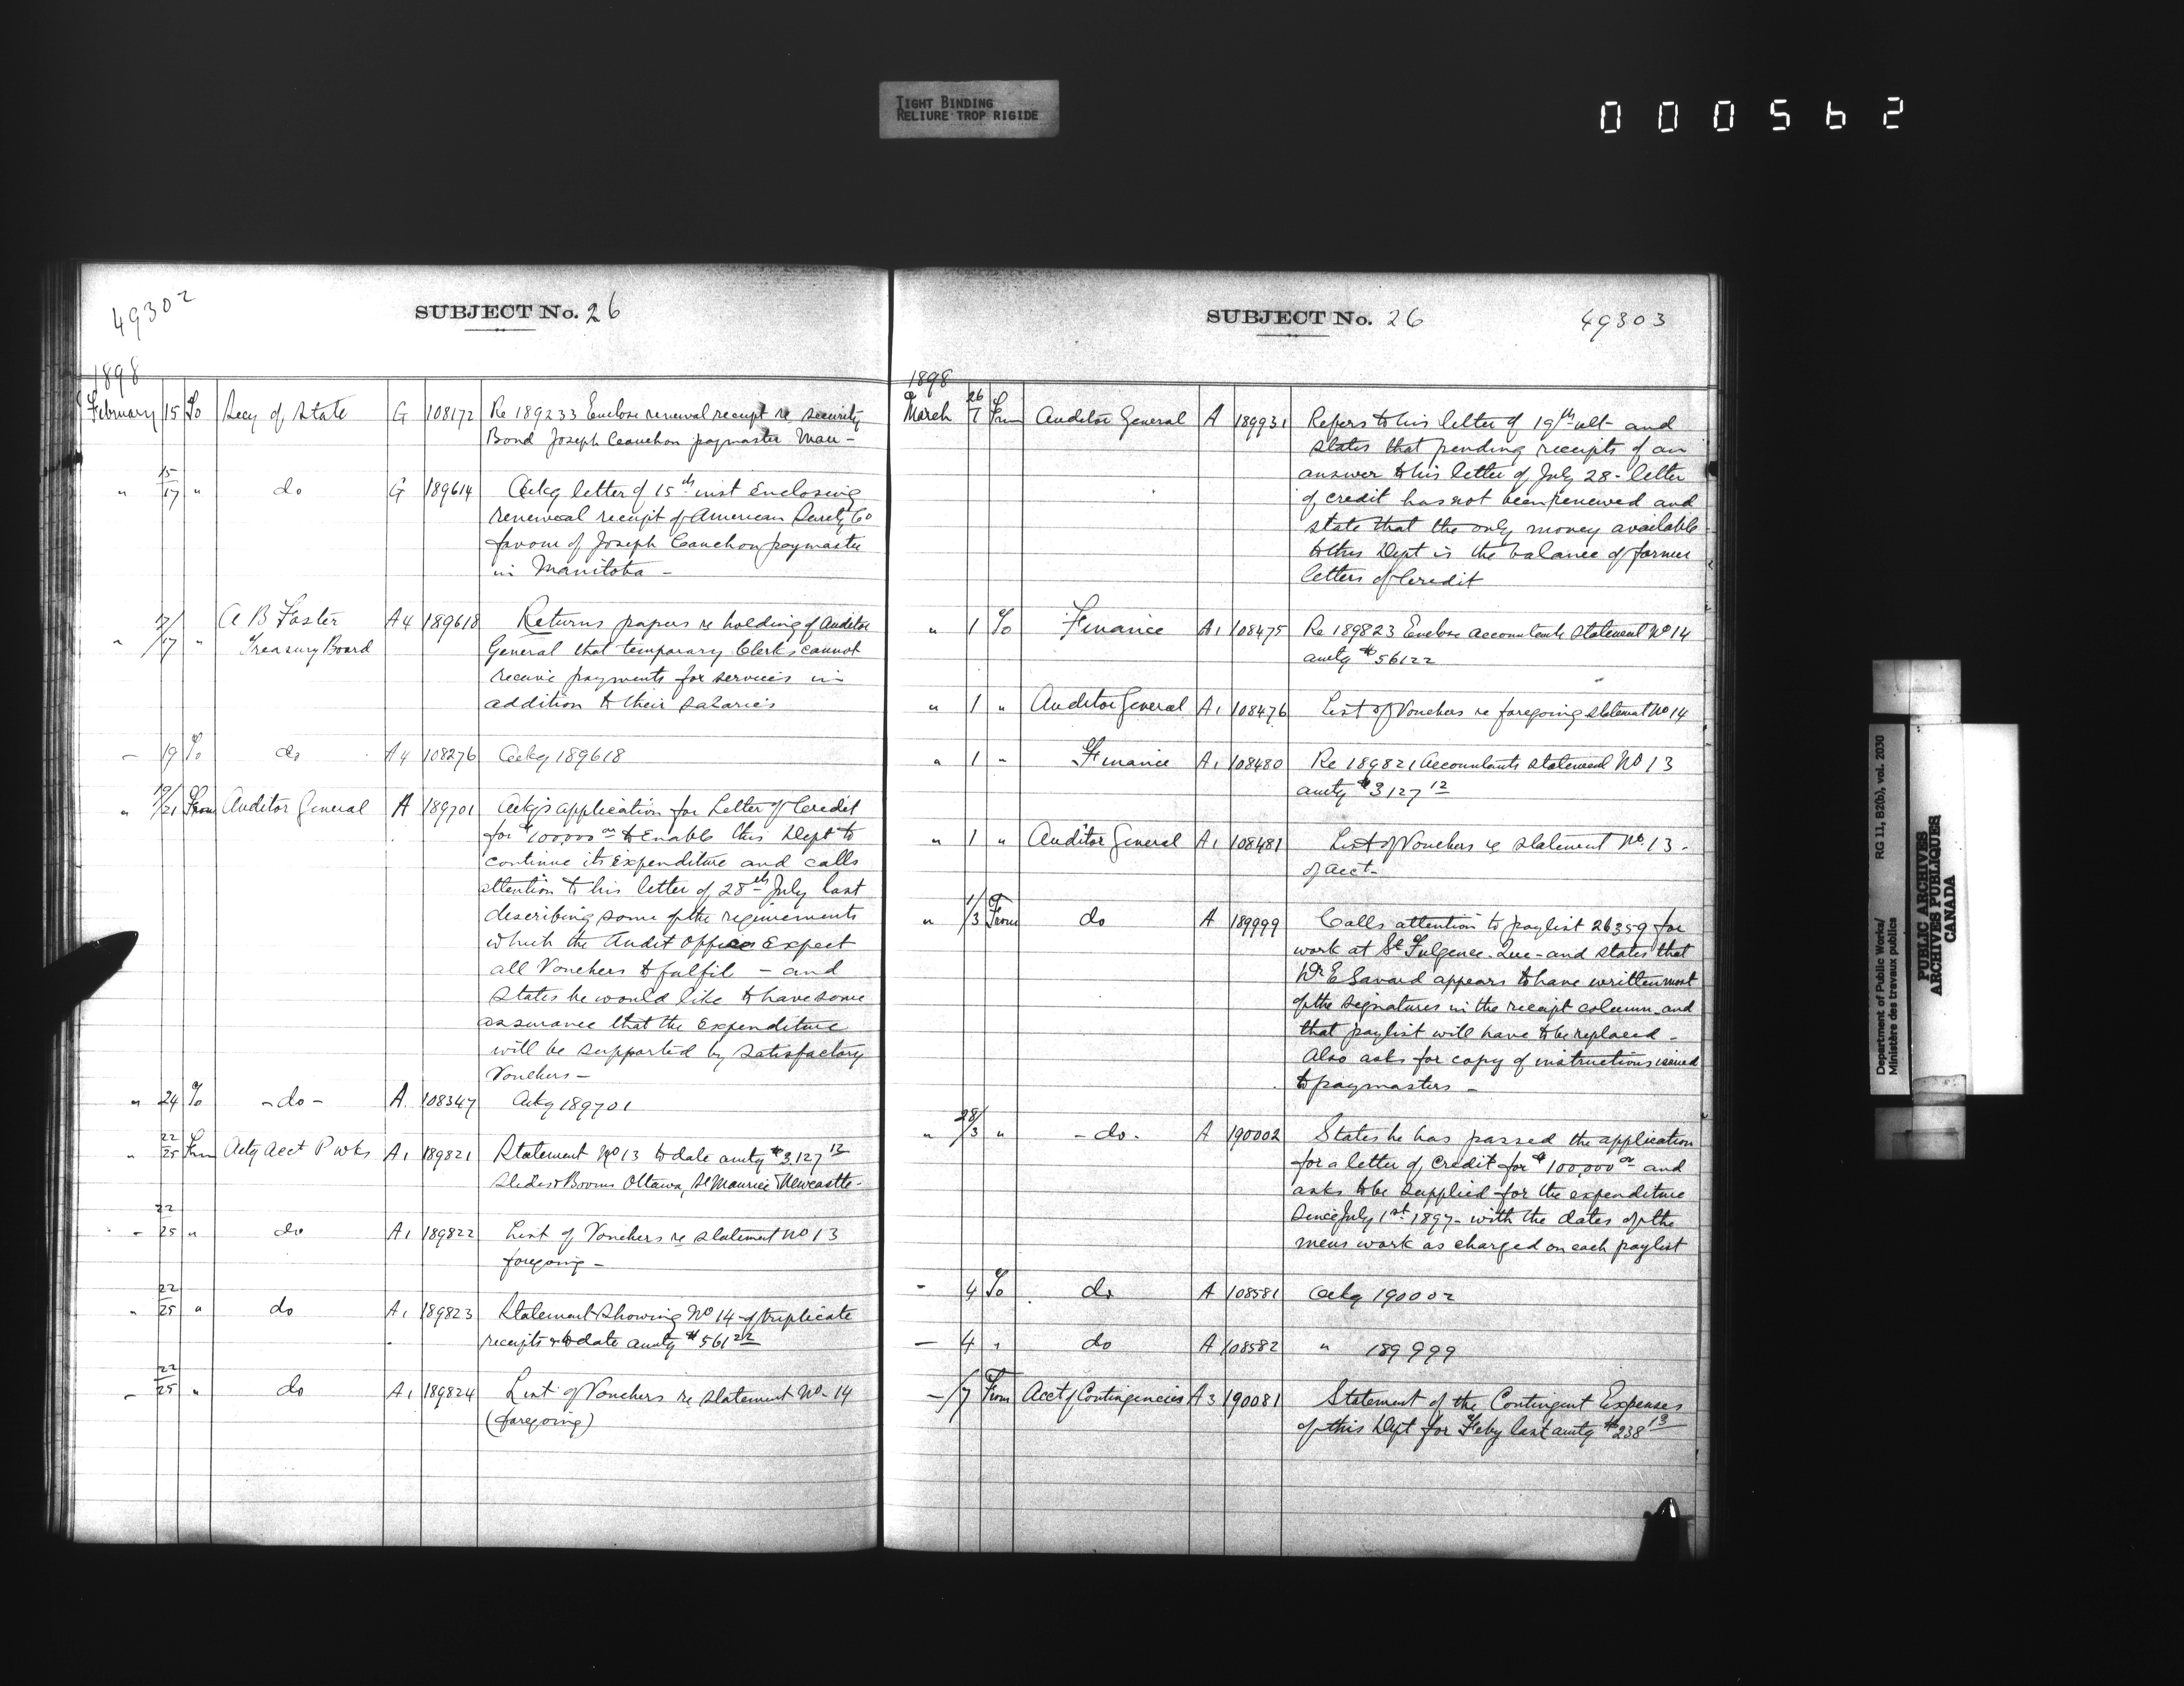 TIGHT BINDING
RELIURE TROP RIGIDE
000562
49302
SUBJECT No. 26
1898
February 15 To Secy of State G 108172 Re 189233 Enclose renewal receipt re security
Bond Joseph Cauchon paymaster Man -
" 15/17 " do G 189614 Ackg letter of 15th inst enclosing
renewal receipt of American Surety Co
favour of Joseph Cauchon paymaster
in Manitoba -
" 17/17 " A B Foster A4 189618 Returns papers re holding of Auditor
Treasury Board General that temporary Clerks cannot
receive payments for services in
addition to their salaries
- 19 To do A4 108276 Ackg 189618
" 19/21 From Auditor General A 189701 Ackgs application for Letter of Credit
for $100,000 00 to Enable this Dept to
continue its expenditure and calls
attention to his letter of 28th July last
describing some of the requirements
which the Audit Office Expect
all Vouchers to fulfil - and
states he would like to have some
assurance that the Expenditure
will be supported by satisfactory
Vouchers -
" 24 To - do - A 108347 Ackg 189701
" 22/25 From Actg Acct P wks A1 189821 Statement No 13 to date amtg $3,127 12
Slides & Booms Ottawa, St Maurice & Newcastle -
- 22/25 " do A1 189822 List of Vouchers re statement No 13
foregoing -
" 22/25 " do A1 189823 Statement showing No 14 of triplicate
receipts to date amtg $561 22
- 22/25 " do A1 189824 List of Vouchers re statement No - 14
(foregoing)
SUBJECT No. 26 49303
1898
March 26/1 From Auditor General A 189931 Refers to his letter of 19th ult - and
states that pending receipts of an
answer to his letter of July 28 - letter
of credit has not been renewed and
state that the only money available
to this Dept is the balance of former
letters of Credit
" 1 To Finance A1 108475 Re 189823 Enclose accountants statement No 14
amtg $561 22
" 1 " Auditor General A1 108476 List of Vouchers re foregoing statement No 14
" 1 " Finance A1 108480 Re 189821 Accountants statement No 13
amtg $3127 12
" 1 " Auditor General A1 108481 List of Vouchers re statement No. 13 -
of acct -
" 1/3 From do A 189999 Calls attention to paylist 26359 for
work at St Fulgence. Que - and states that
E Savard appears to have written most
of the signatures in the receipt column and
that paylist will have to be replaced -
Also asks for copy of instructions issued
to paymasters -
" 28/3 " - do - A 190002 States he has passed the application
for a letter of Credit for $100,000 00 and
asks to be supplied for the expenditure
since July 1st 1897 - with the dates of the
mens work as charged on each paylist
- 4 To do A 108581 Ackg 190002
- 4 " do A 108582 " 189999
- /7 From Acct of Contingencies A3 190081 Statement of the Contingent Expenses
of this Dept for Feby last amtg $238 13
Department of Public Works/ RG 11, B2(b), vol. 2030
Ministère des travaux publics
PUBLIC ARCHIVES
ARCHIVES PUBLIQUES
CANADA